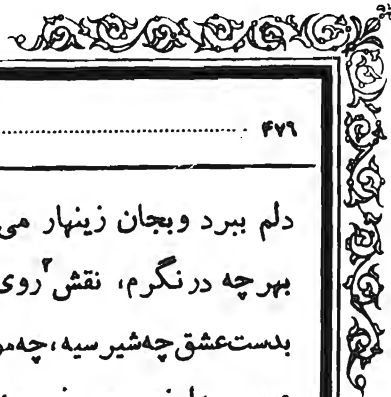 ۴۷۹
دلم ببرد وبجان زینهار می
بهر چه در نگرم، نقش۲ روی
بدست عشق چه شیر سیه، چه مو